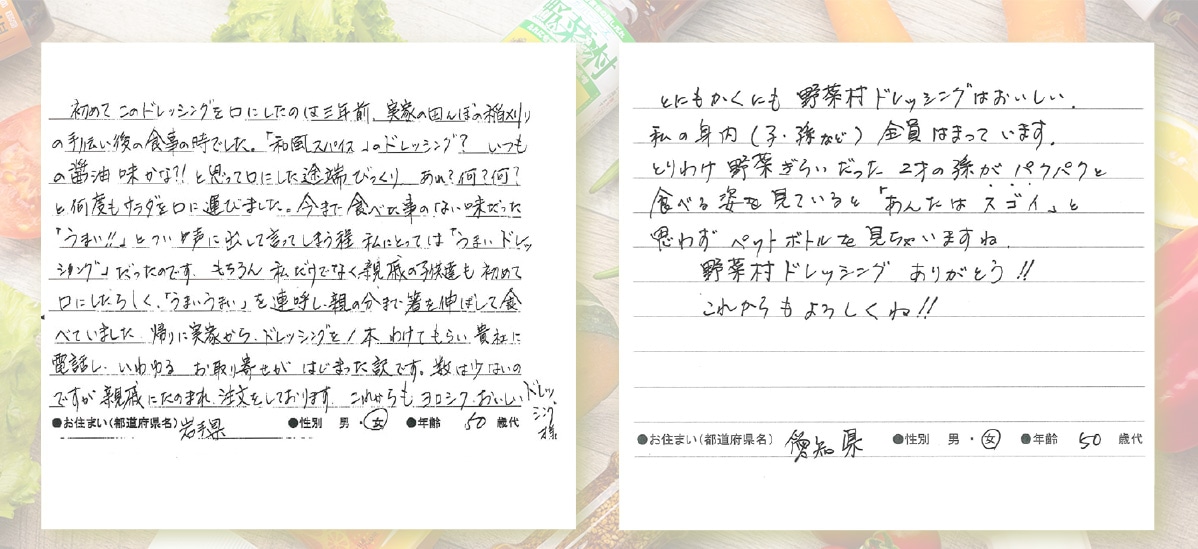 初めてこのドレッシングを口にしたのは三年前、実家の田んぼの稲刈り
の手伝い後の食事の時でした。「和風スパイス」のドレッシング？ いつも
の醤油味かな?!と思って口にした途端びっくり あれ？何？何？
と何度もサラダを口に運びました。今まで食べた事のない味だった
「うまい!!」とつい声に出して言ってしまう程 私にとっては「うまいドレッ
シング」だったのです。もちろん私だけでなく、親戚の子供達も初めて
口にしたらしく、「うまいうまい」を連呼し、親の分まで箸を伸ばして食
べていました 帰りに実家から、ドレッシングを1本わけてもらい、貴社に
電話し、いわゆる お取り寄せが はじまった訳です。数は少ないの
ですが親戚にたのまれ、注文をしております。これからもヨロシク、おいしいドレッ
シング
様
●お住まい（都道府県名） 岩手県 ●性別 男・女 ●年齢 50 歳代
野菜村
とにもかくにも 野菜村ドレッシングはおいしい。
私の身内（子・孫など）全員はまっています。
とりわけ野菜ぎらいだった 2才の孫が パクパクと
食べる姿を見ていると「あんたはスゴイ」と
思わず ペットボトルを見ちゃいますね。
野菜村ドレッシング ありがとう!!
これからも よろしくね!!
●お住まい（都道府県名） 愛知県 ●性別 男・女 ●年齢 50 歳代